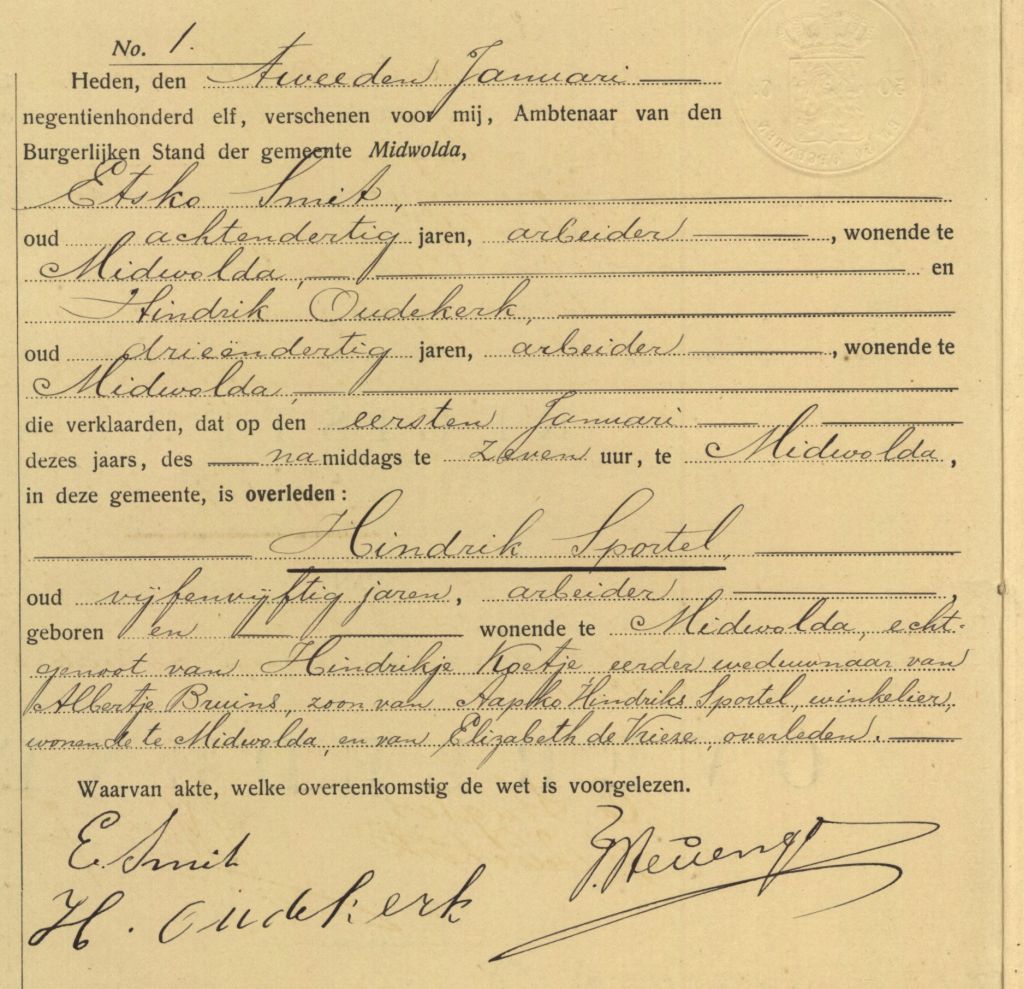 No. 1.
Heden, den tweeden Januari
negentienhonderd elf, verschenen voor mij, Ambtenaar van den
Burgerlijken Stand der gemeente Midwolda,
Etsko Smit,
oud achtendertig jaren, arbeider, wonende te
Midwolda, en
Hindrik Oudekerk,
oud drieëndertig jaren, arbeider, wonende te
Midwolda,
die verklaarden, dat op den eersten Januari
dezes jaars, des namiddags te zeven uur, te Midwolda,
in deze gemeente, is overleden:
Hindrik Sportel,
oud vijfenvijftig jaren, arbeider,
geboren en wonende te Midwolda, echt-
genoot van Hindrikje Koetje eerder weduwnaar van
Albertje Bruins, zoon van Hindriks Sportel, winkelier,
wonende te Midwolda, en van Elizabeth de Vrieze, overleden.
Waarvan akte, welke overeenkomstig de wet is voorgelezen.
E. Smit
H. Oudekerk